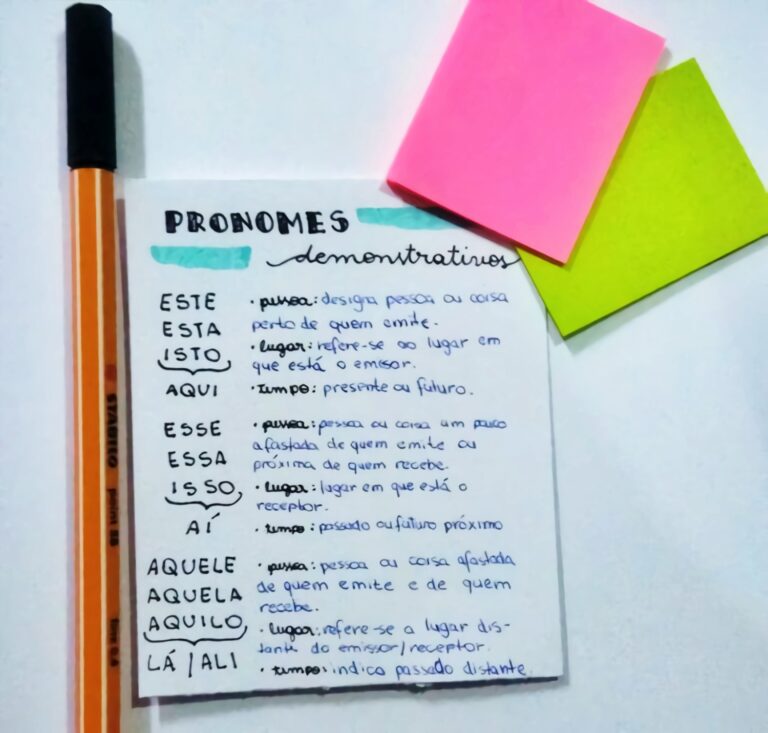 PRONOMES
demonstrativos
ESTE • pessoa: designa pessoa ou coisa
ESTA perto de quem emite.
ISTO • lugar: refere-se ao lugar em
que está o emissor.
AQUI • tempo: presente ou futuro.
ESSE • pessoa: pessoa ou coisa um pouco
afastada de quem emite ou
ESSA próxima de quem recebe.
ISSO • lugar: lugar em que está o
receptor.
AÍ • tempo: passado ou futuro próximo
AQUELE • pessoa: pessoa ou coisa afastada
AQUELA de quem emite e de quem
recebe.
AQUILO • lugar: refere-se a lugar dis-
tante do emissor/receptor.
LÁ / ALI • tempo: indica passado distante.
STABILO point 88
fine 0.4